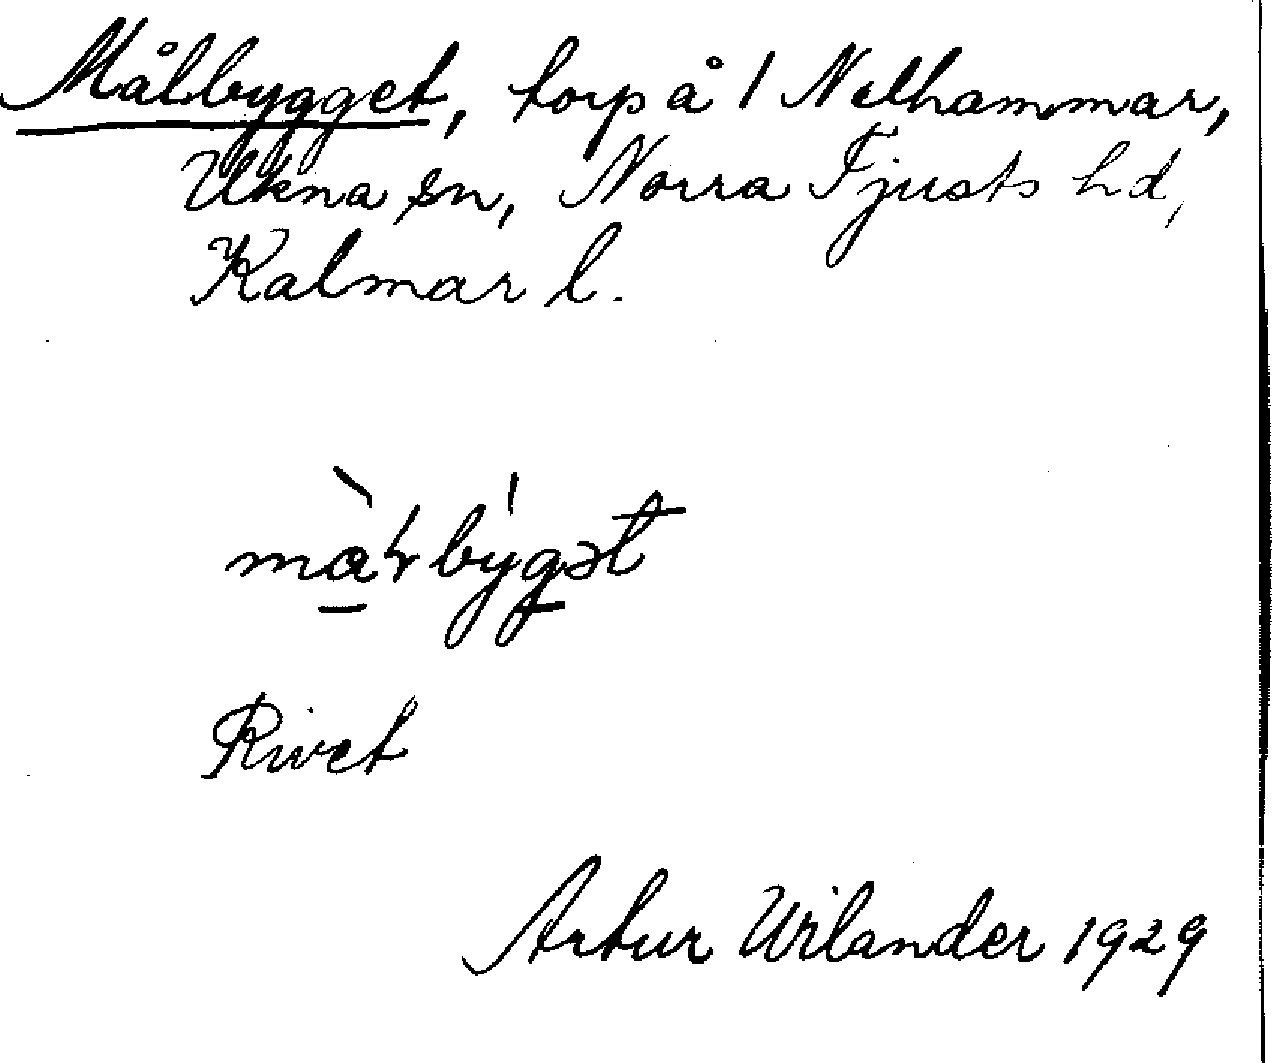 Målbygget, torp å 1 Nelhammar,
Ukna sn, Norra Tjusts hd,
Kalmar l.
Rivet
Artur Wilander 1929